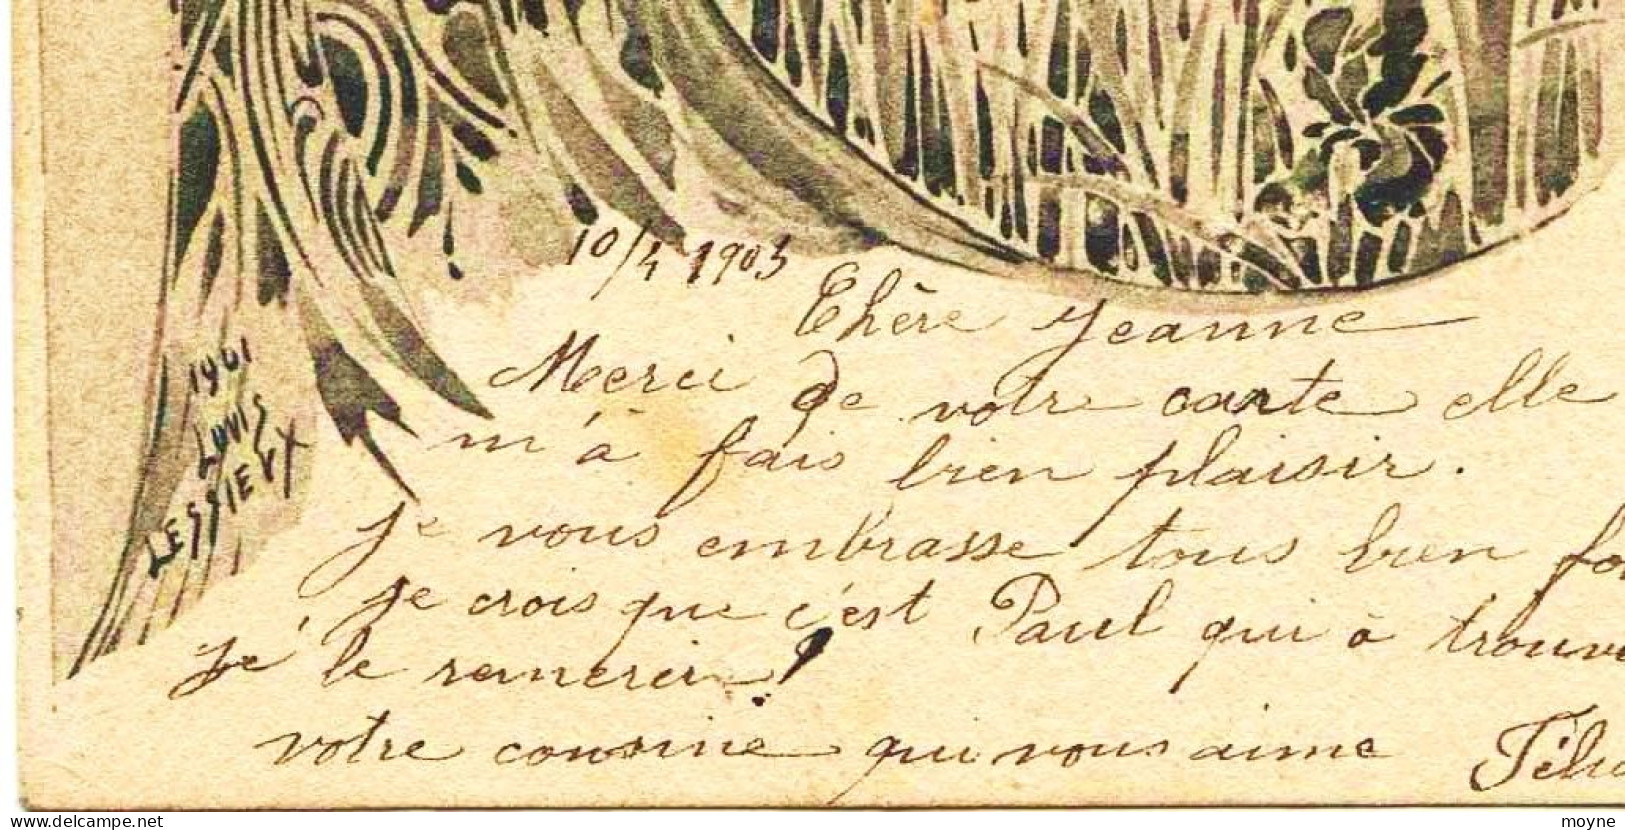 10/4 1903
Chère Jeanne
Merci de votre carte elle
m'à fais bien plaisir.
Je vous embrasse tous bien
je crois que c'est Paul qui à
Je le remercie !
votre cousine qui vous aime
1901
LOUIS
LESSIEUX
delcampe.net
moyne